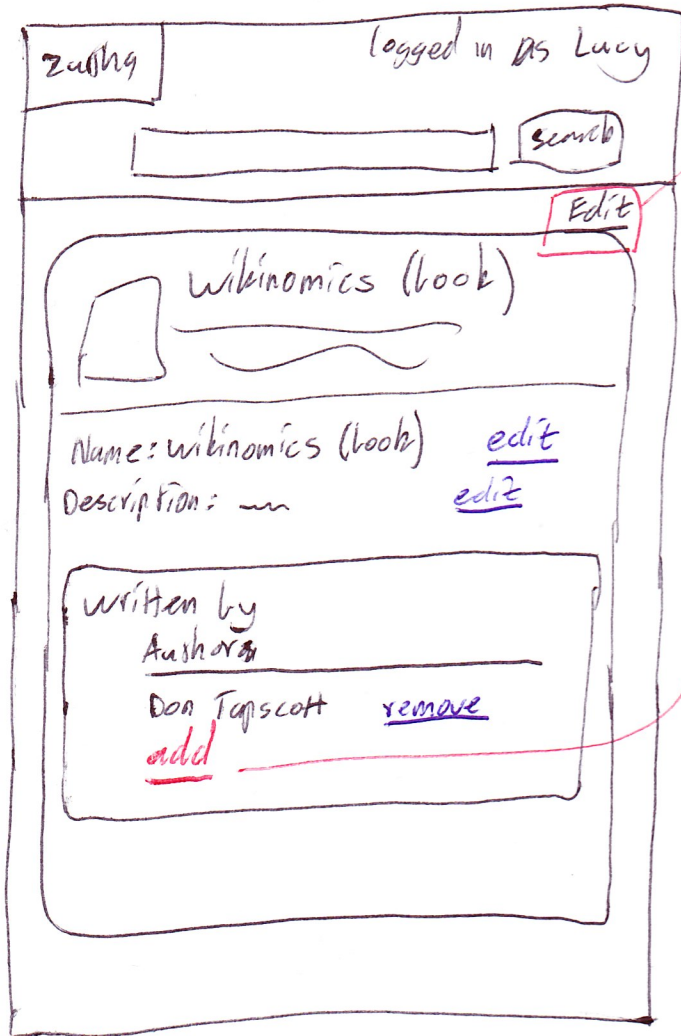 logged in as Lucy
search
Edit
Wikinomics (book)
Name: Wikinomics (book) edit
Description: edit
written by
Authors
Don Tapscott remove
add